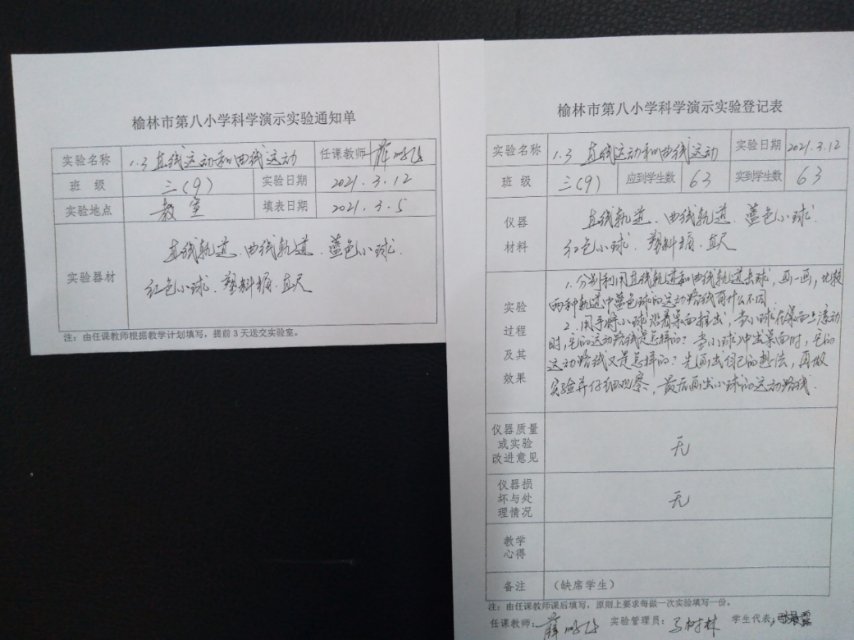 榆林市第八小学科学演示实验通知单
实验名称 1.3 直线运动和曲线运动 任课教师 薛
班 级 三(9) 实验日期 2021.3.12
实验地点 教室 填表日期 2021.3.5
实验器材
直线轨道、曲线轨道、蓝色小球、
红色小球、塑料桶、直尺
注：由任课教师根据教学计划填写，提前3天送交实验室。
榆林市第八小学科学演示实验登记表
实验名称 1.3 直线运动和曲线运动 实验日期 2021.3.12
班 级 三(9) 应到学生数 63 实到学生数 63
仪器
材料
直线轨道、曲线轨道、蓝色小球、
红色小球、塑料桶、直尺
实验
过程
及其
效果
1. 分别利用直线轨道和曲线轨道击球，画一画，比较
两种轨道中蓝色球的运动路线有什么不同.
2. 用手将小球沿着桌面推出，当小球在桌面上滚动
时，它的运动路线是怎样的？当小球冲出桌面时，它的
运动路线又是怎样的？先画出自己的想法，再做
实验并仔细观察，最后画出小球的运动路线.
仪器质量
或实验
改进意见
无
仪器损
坏与处
理情况
无
教学
心得
备注 （缺席学生）
注：由任课教师课后填写，原则上要求每做一次实验填写一份。
任课教师: 薛 实验管理员: 马树林 学生代表: